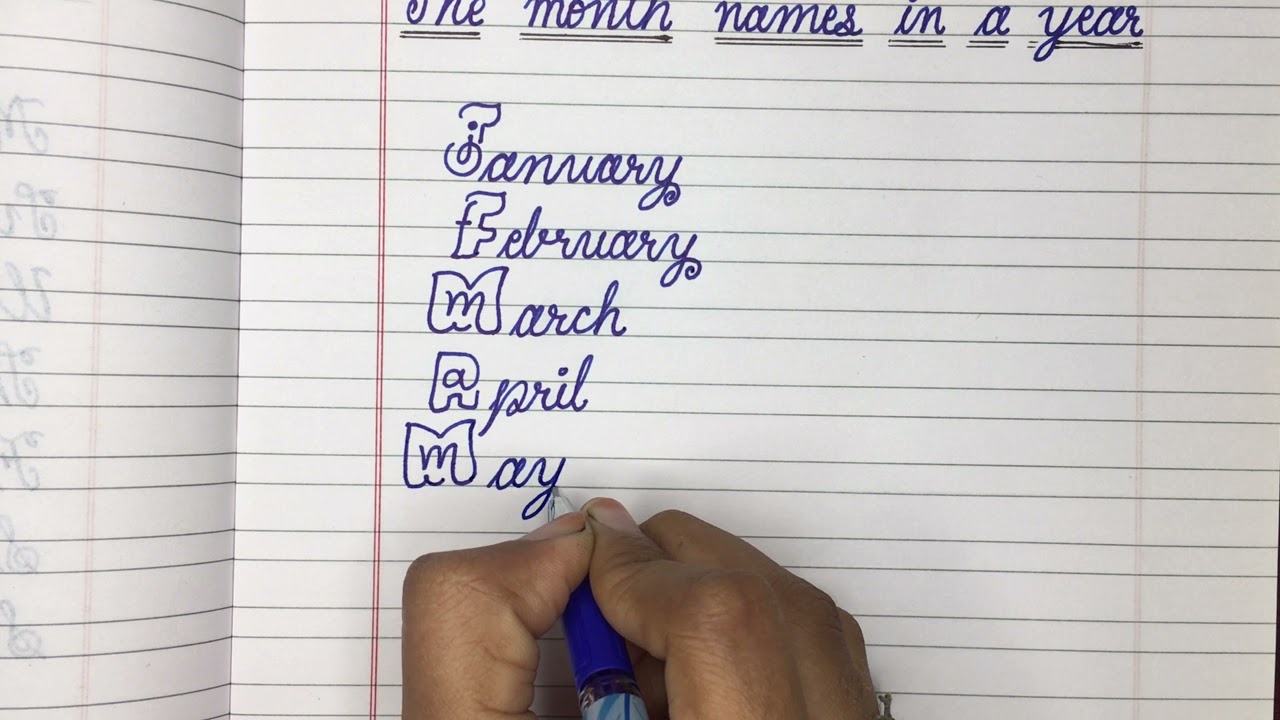 The month names in a year
January
February
March
April
May